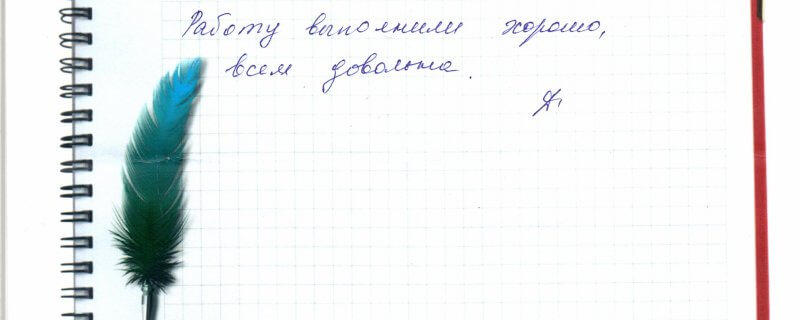 Работу выполнили хорошо,
всем довольна.